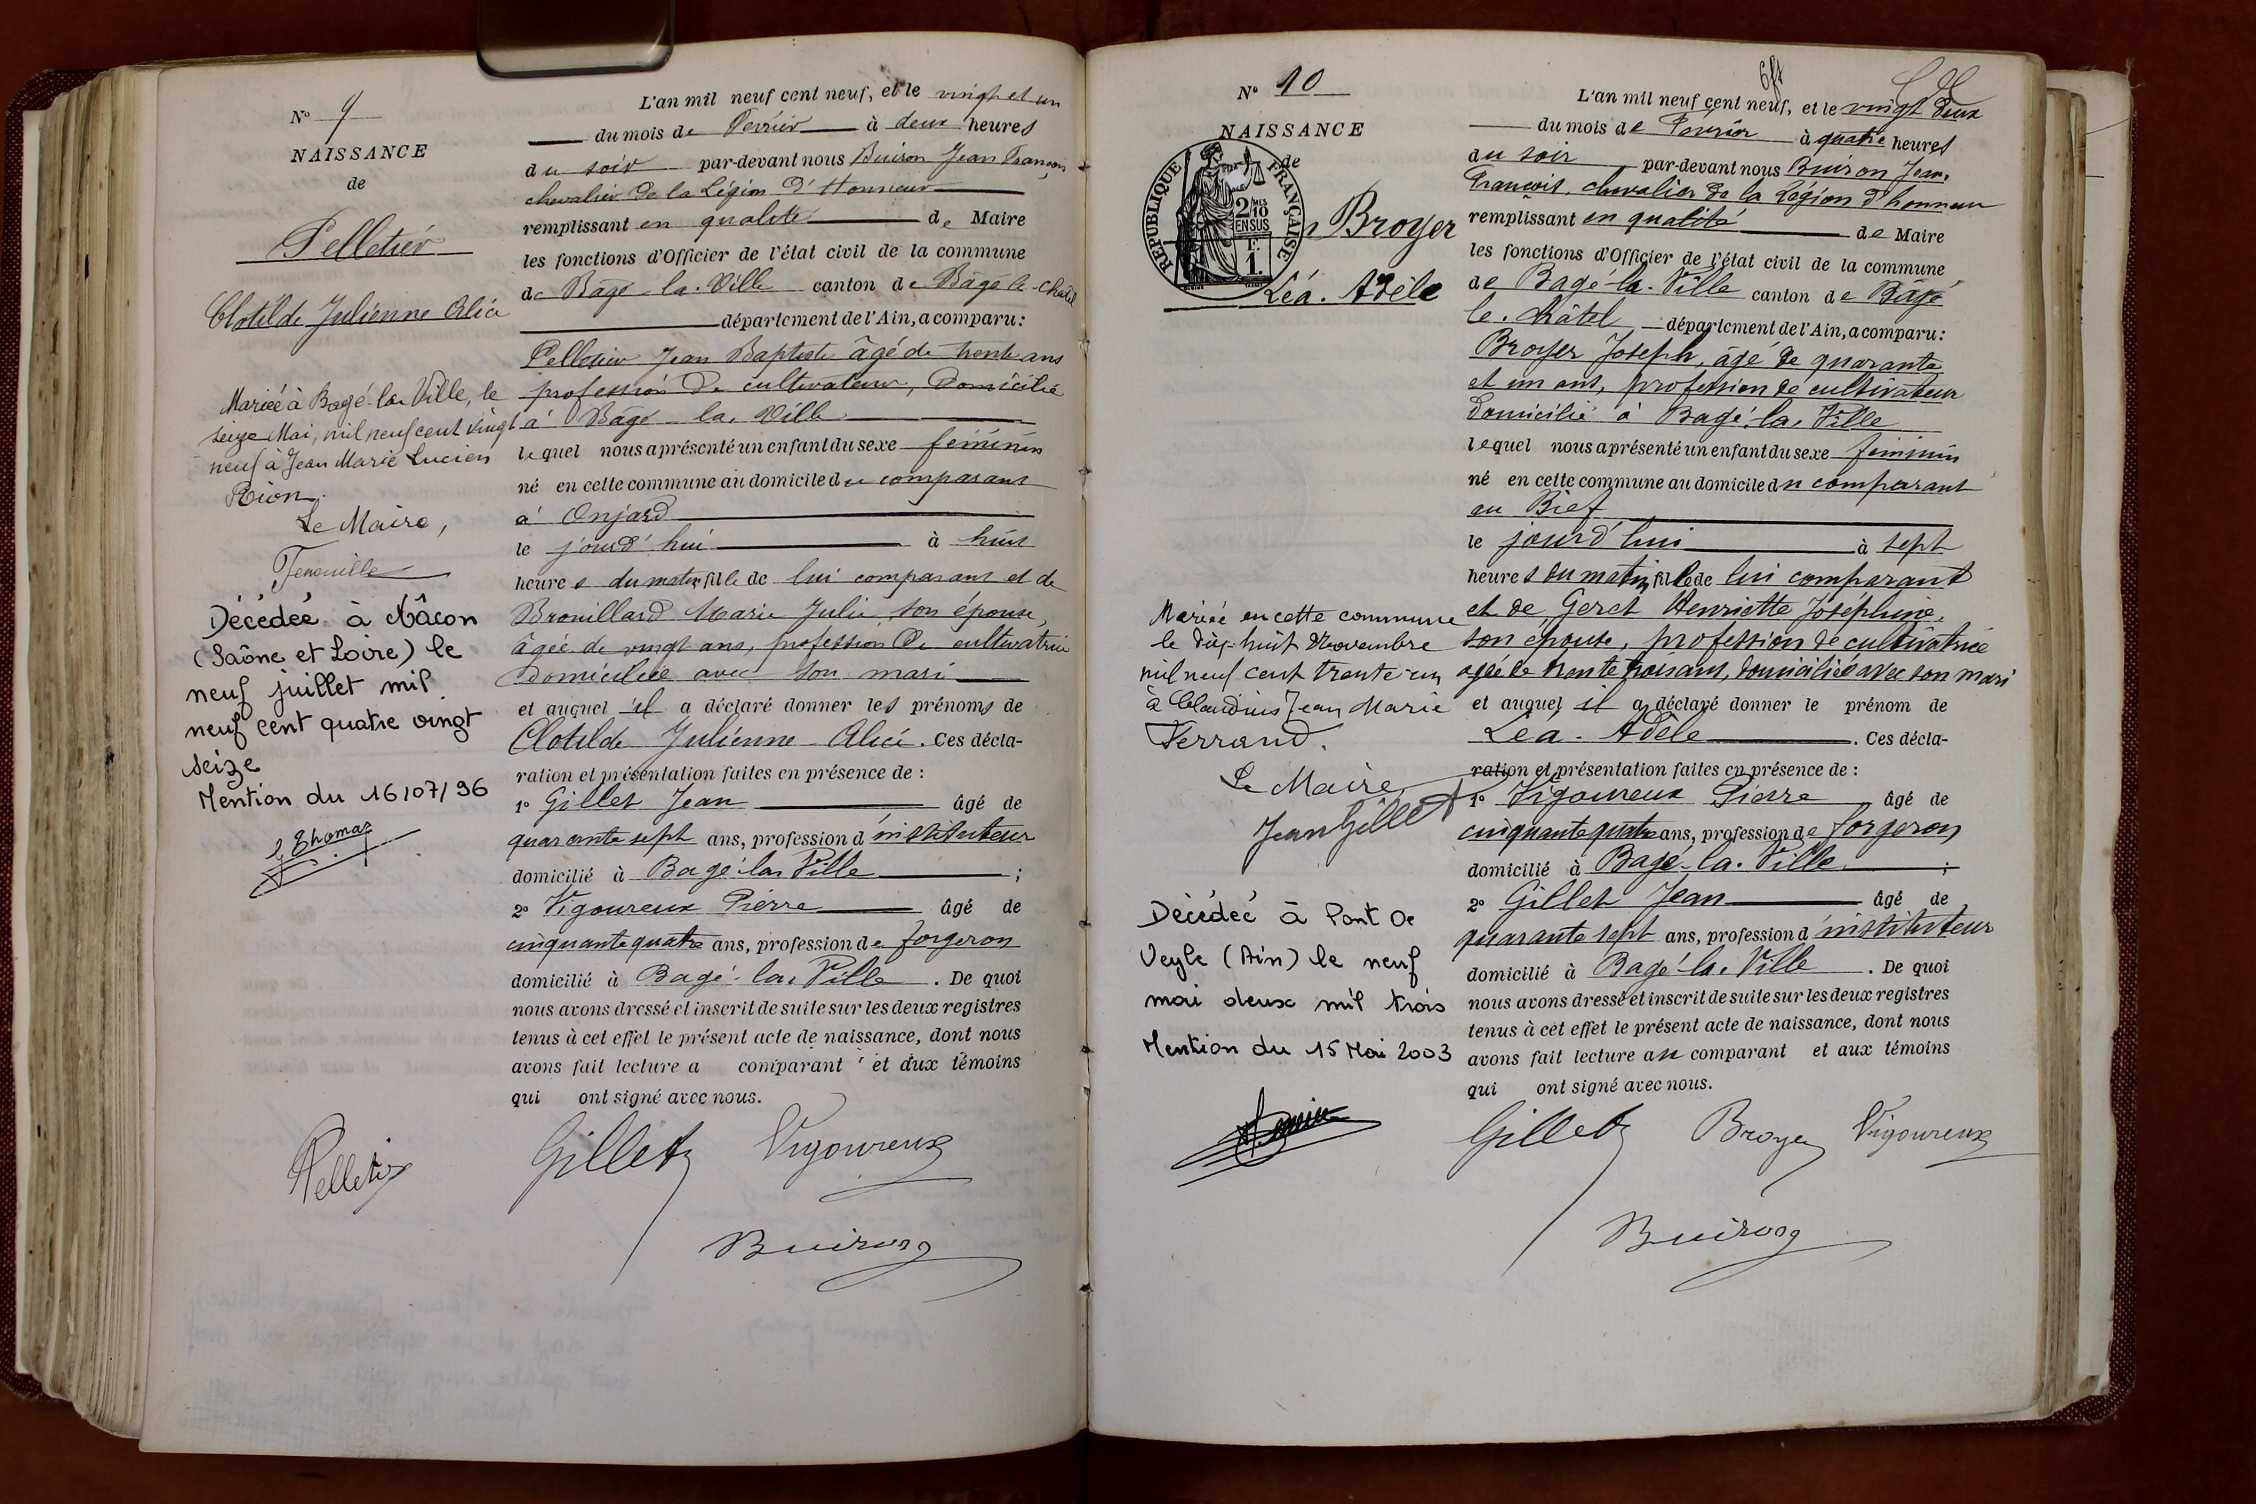 N° 9
NAISSANCE
de
Pelletier
Clotilde Julienne Alice
Mariée à Bagé-la-Ville, le
seize Mai, mil neuf cent vingt
neuf à Jean Marie Lucien
Rion.
Le Maire,
Décédée à Mâcon
(Saône et Loire) le
neuf juillet mil
neuf cent quatre vingt
seize
Mention du 16/07/96
Thomas
L'an mil neuf cent neuf, et le vingt et un
du mois de Février à deux heures
du soir par-devant nous Buiron Jean François
chevalier de la Légion d'Honneur
remplissant en qualité de Maire
les fonctions d'Officier de l'état civil de la commune
de Bâgé-la-Ville canton de Bâgé-le-Châtel
département de l'Ain, a comparu:
Pelletier Jean Baptiste âgé de trente ans
profession de cultivateur, domicilié
à Bâgé-la-Ville
lequel nous a présenté un enfant du sexe féminin
né en cette commune au domicile du comparant
à Onjard
le jourd'hui à huit
heures du matin, fille de lui comparant et de
Brouillard Marie Julie son épouse,
âgée de vingt ans, profession de cultivatrice
domiciliée avec son mari
et auquel il a déclaré donner les prénoms de
Clotilde Julienne Alice. Ces décla-
ration et présentation faites en présence de :
1° Gillet Jean âgé de
quarante sept ans, profession d'instituteur
domicilié à Bagé-la-Ville ;
2° Vigoureux Pierre âgé de
cinquante quatre ans, profession de forgeron
domicilié à Bagé-la-Ville. De quoi
nous avons dressé et inscrit de suite sur les deux registres
tenus à cet effet le présent acte de naissance, dont nous
avons fait lecture a comparant et aux témoins
qui ont signé avec nous.
Pelletier Gillet Vigoureux
Buiron
N° 10
NAISSANCE
de
RÉPUBLIQUE FRANÇAISE
2/10 MES
EN SUS
F.
1.
Broyer
Léa. Adèle
Mariée en cette commune
le dix-huit Novembre
mil neuf cent trente-un
à Claudius Jean Marie
Ferrand.
Le Maire
Jean Gillet
Décédée à Pont de
Veyle (Ain) le neuf
mai deux mil trois
Mention du 15 Mai 2003
L'an mil neuf cent neuf, et le vingt deux
du mois de Février à quatre heures
du soir par-devant nous Buiron Jean,
François, chevalier de la Légion d'honneur
remplissant en qualité de Maire
les fonctions d'Officier de l'état civil de la commune
de Bagé-la-Ville canton de Bâgé
le-Châtel département de l'Ain, a comparu:
Broyer Joseph, âgé de quarante
et un ans, profession de cultivateur
domicilié à Bagé-la-Ville
lequel nous a présenté un enfant du sexe féminin
né en cette commune au domicile du comparant
au Bief
le jourd'hui à sept
heures du matin fille de lui comparant
et de Geret Henriette Joséphine,
son épouse, profession de cultivatrice
agée de trente trois ans, domiciliée avec son mari
et auquel il a déclaré donner le prénom de
Léa-Adèle. Ces décla-
ration et présentation faites en présence de :
1° Vigoureux Pierre âgé de
cinquante quatre ans, profession de forgeron
domicilié à Bagé-la-Ville ;
2° Gillet Jean âgé de
quarante sept ans, profession d'instituteur
domicilié à Bagé-la-Ville. De quoi
nous avons dressé et inscrit de suite sur les deux registres
tenus à cet effet le présent acte de naissance, dont nous
avons fait lecture au comparant et aux témoins
qui ont signé avec nous.
Gillet Broyer Vigoureux
Buiron